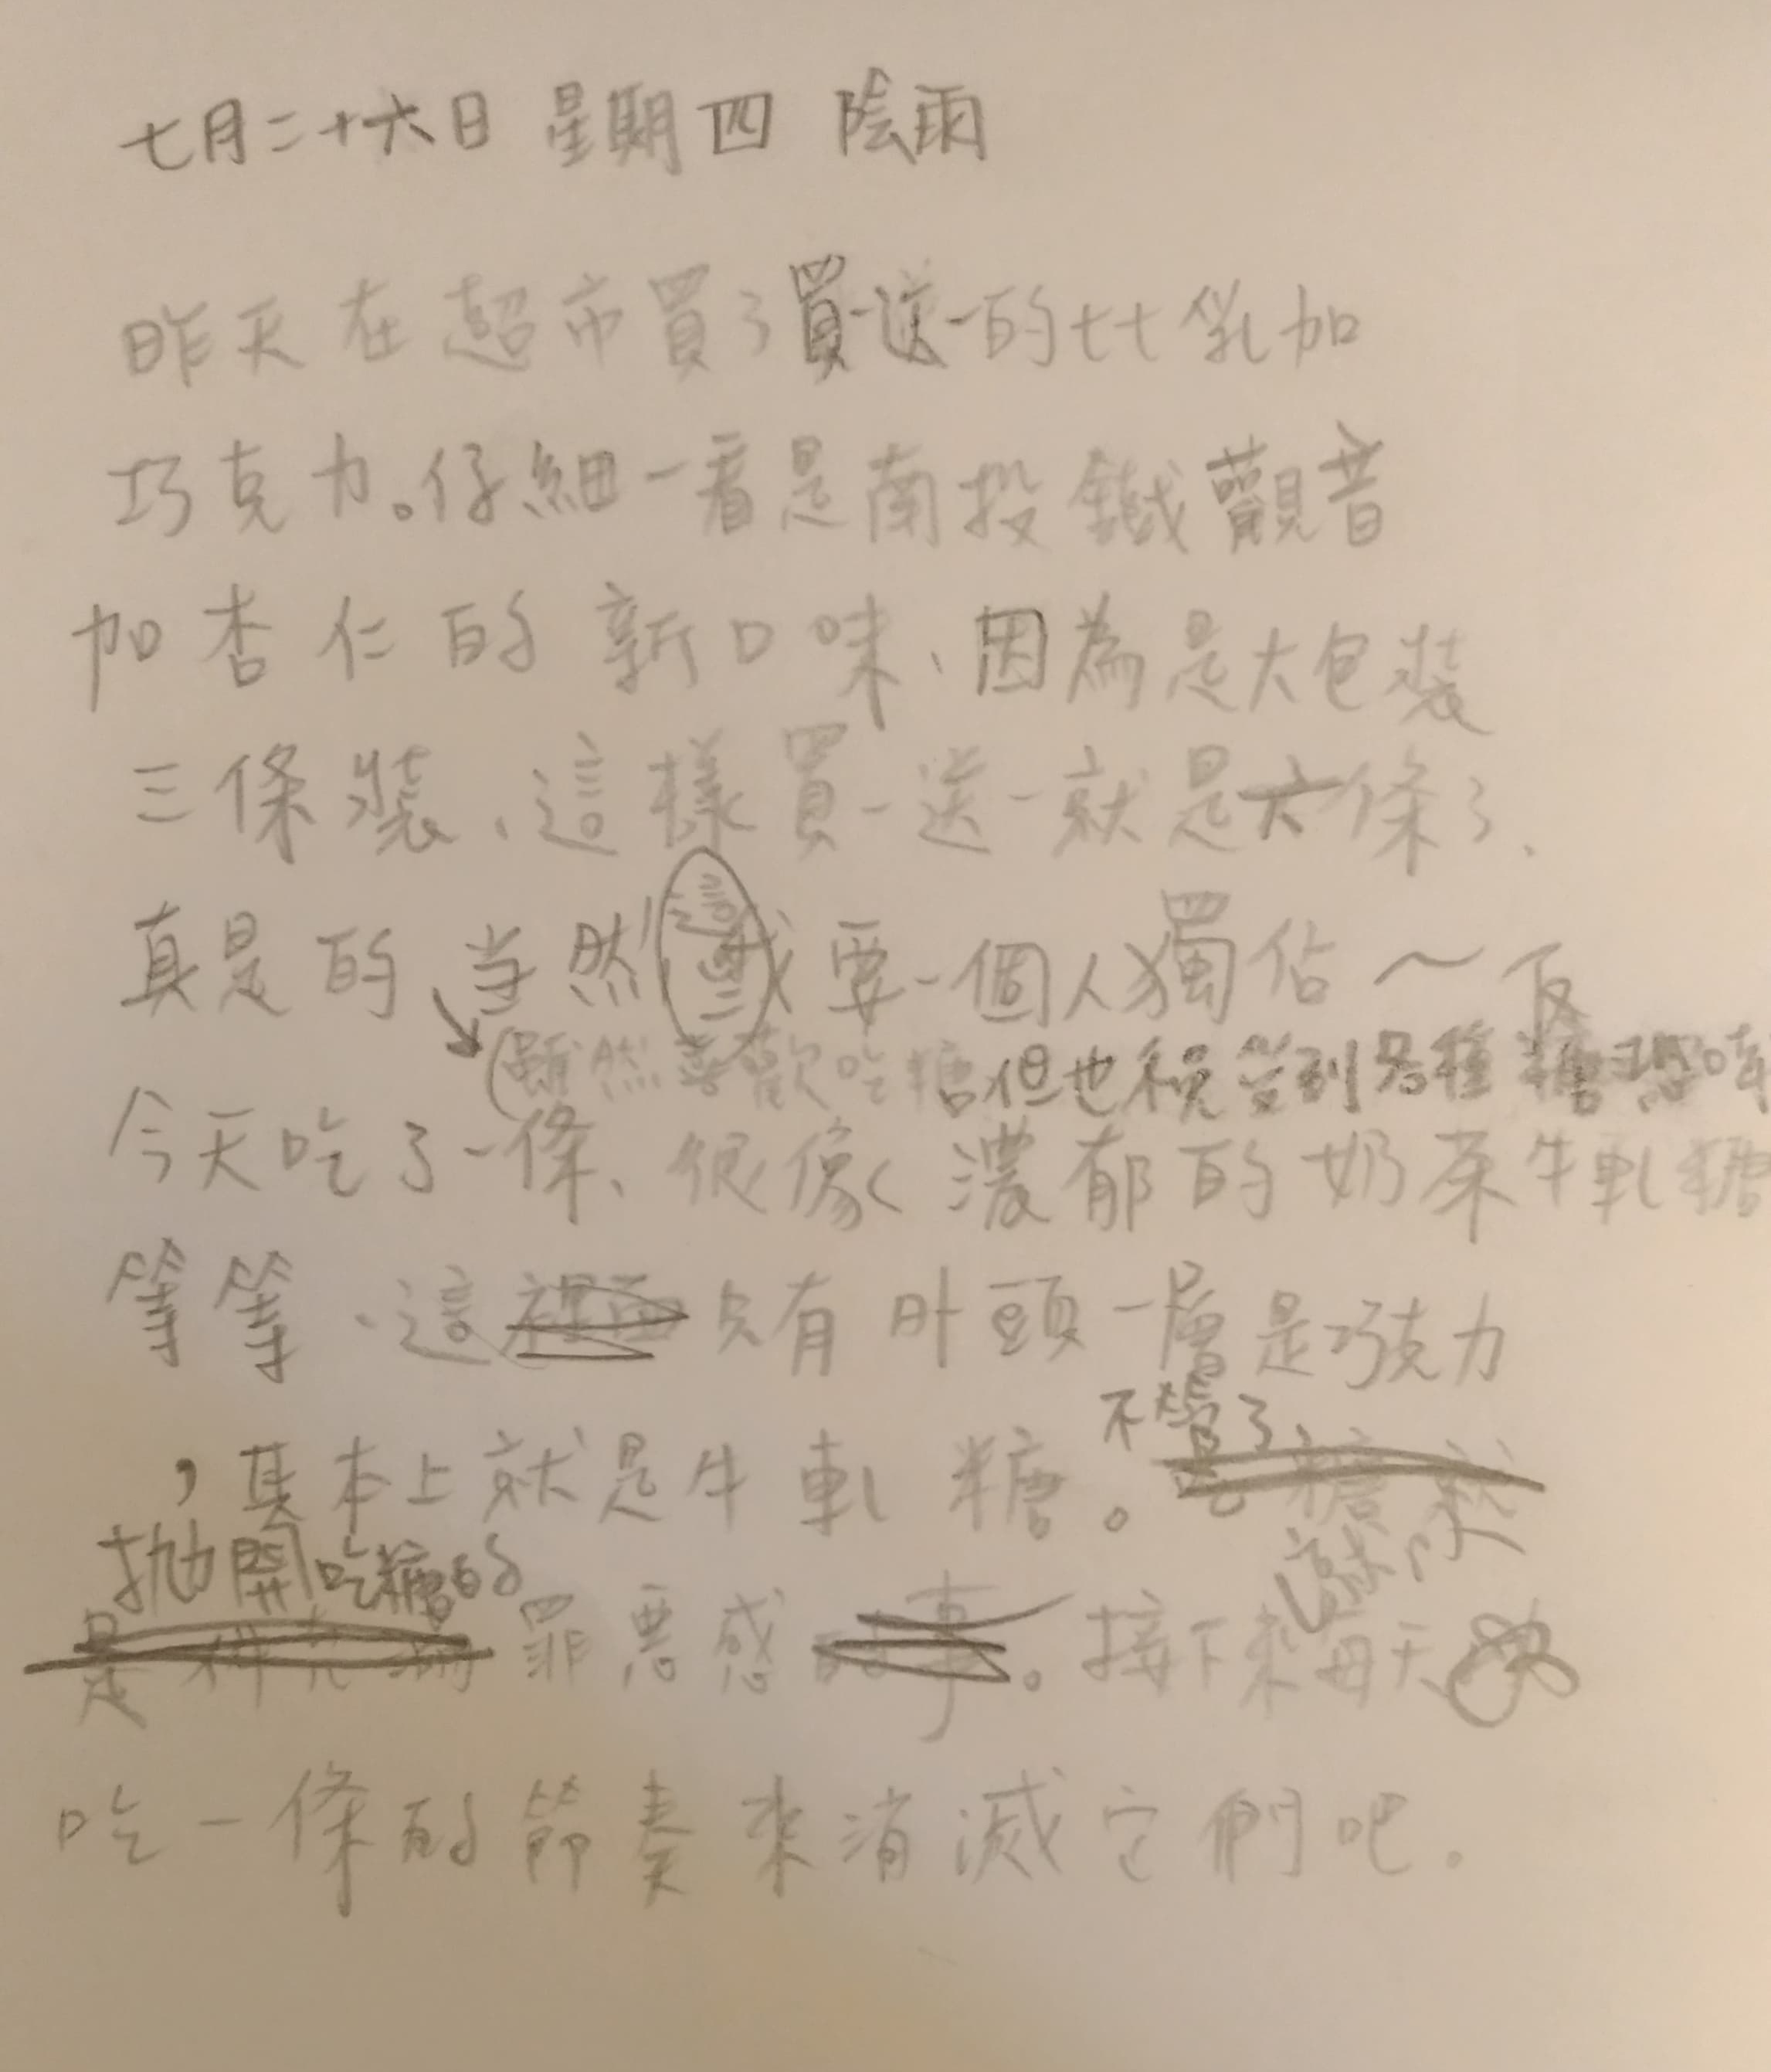 七月二十六日 星期四 陰雨
昨天在超市買了買一送一的七七乳加
巧克力。仔細一看是南投鐵觀音
加杏仁的新口味、因為是大包裝
三條裝、這樣買一送一就是六條了、
真是的、当然我要一個人獨佔～
(雖然喜歡吃糖但也稅受到另種糖恐
今天吃了一條、很像濃郁的奶茶牛軋糖
等等、這只有外頭一層是巧克力
不管了、
，其本上就是牛軋糖。
拋開吃糖的
罪惡感。接下來每天
吃一條的節奏來消滅它們吧。